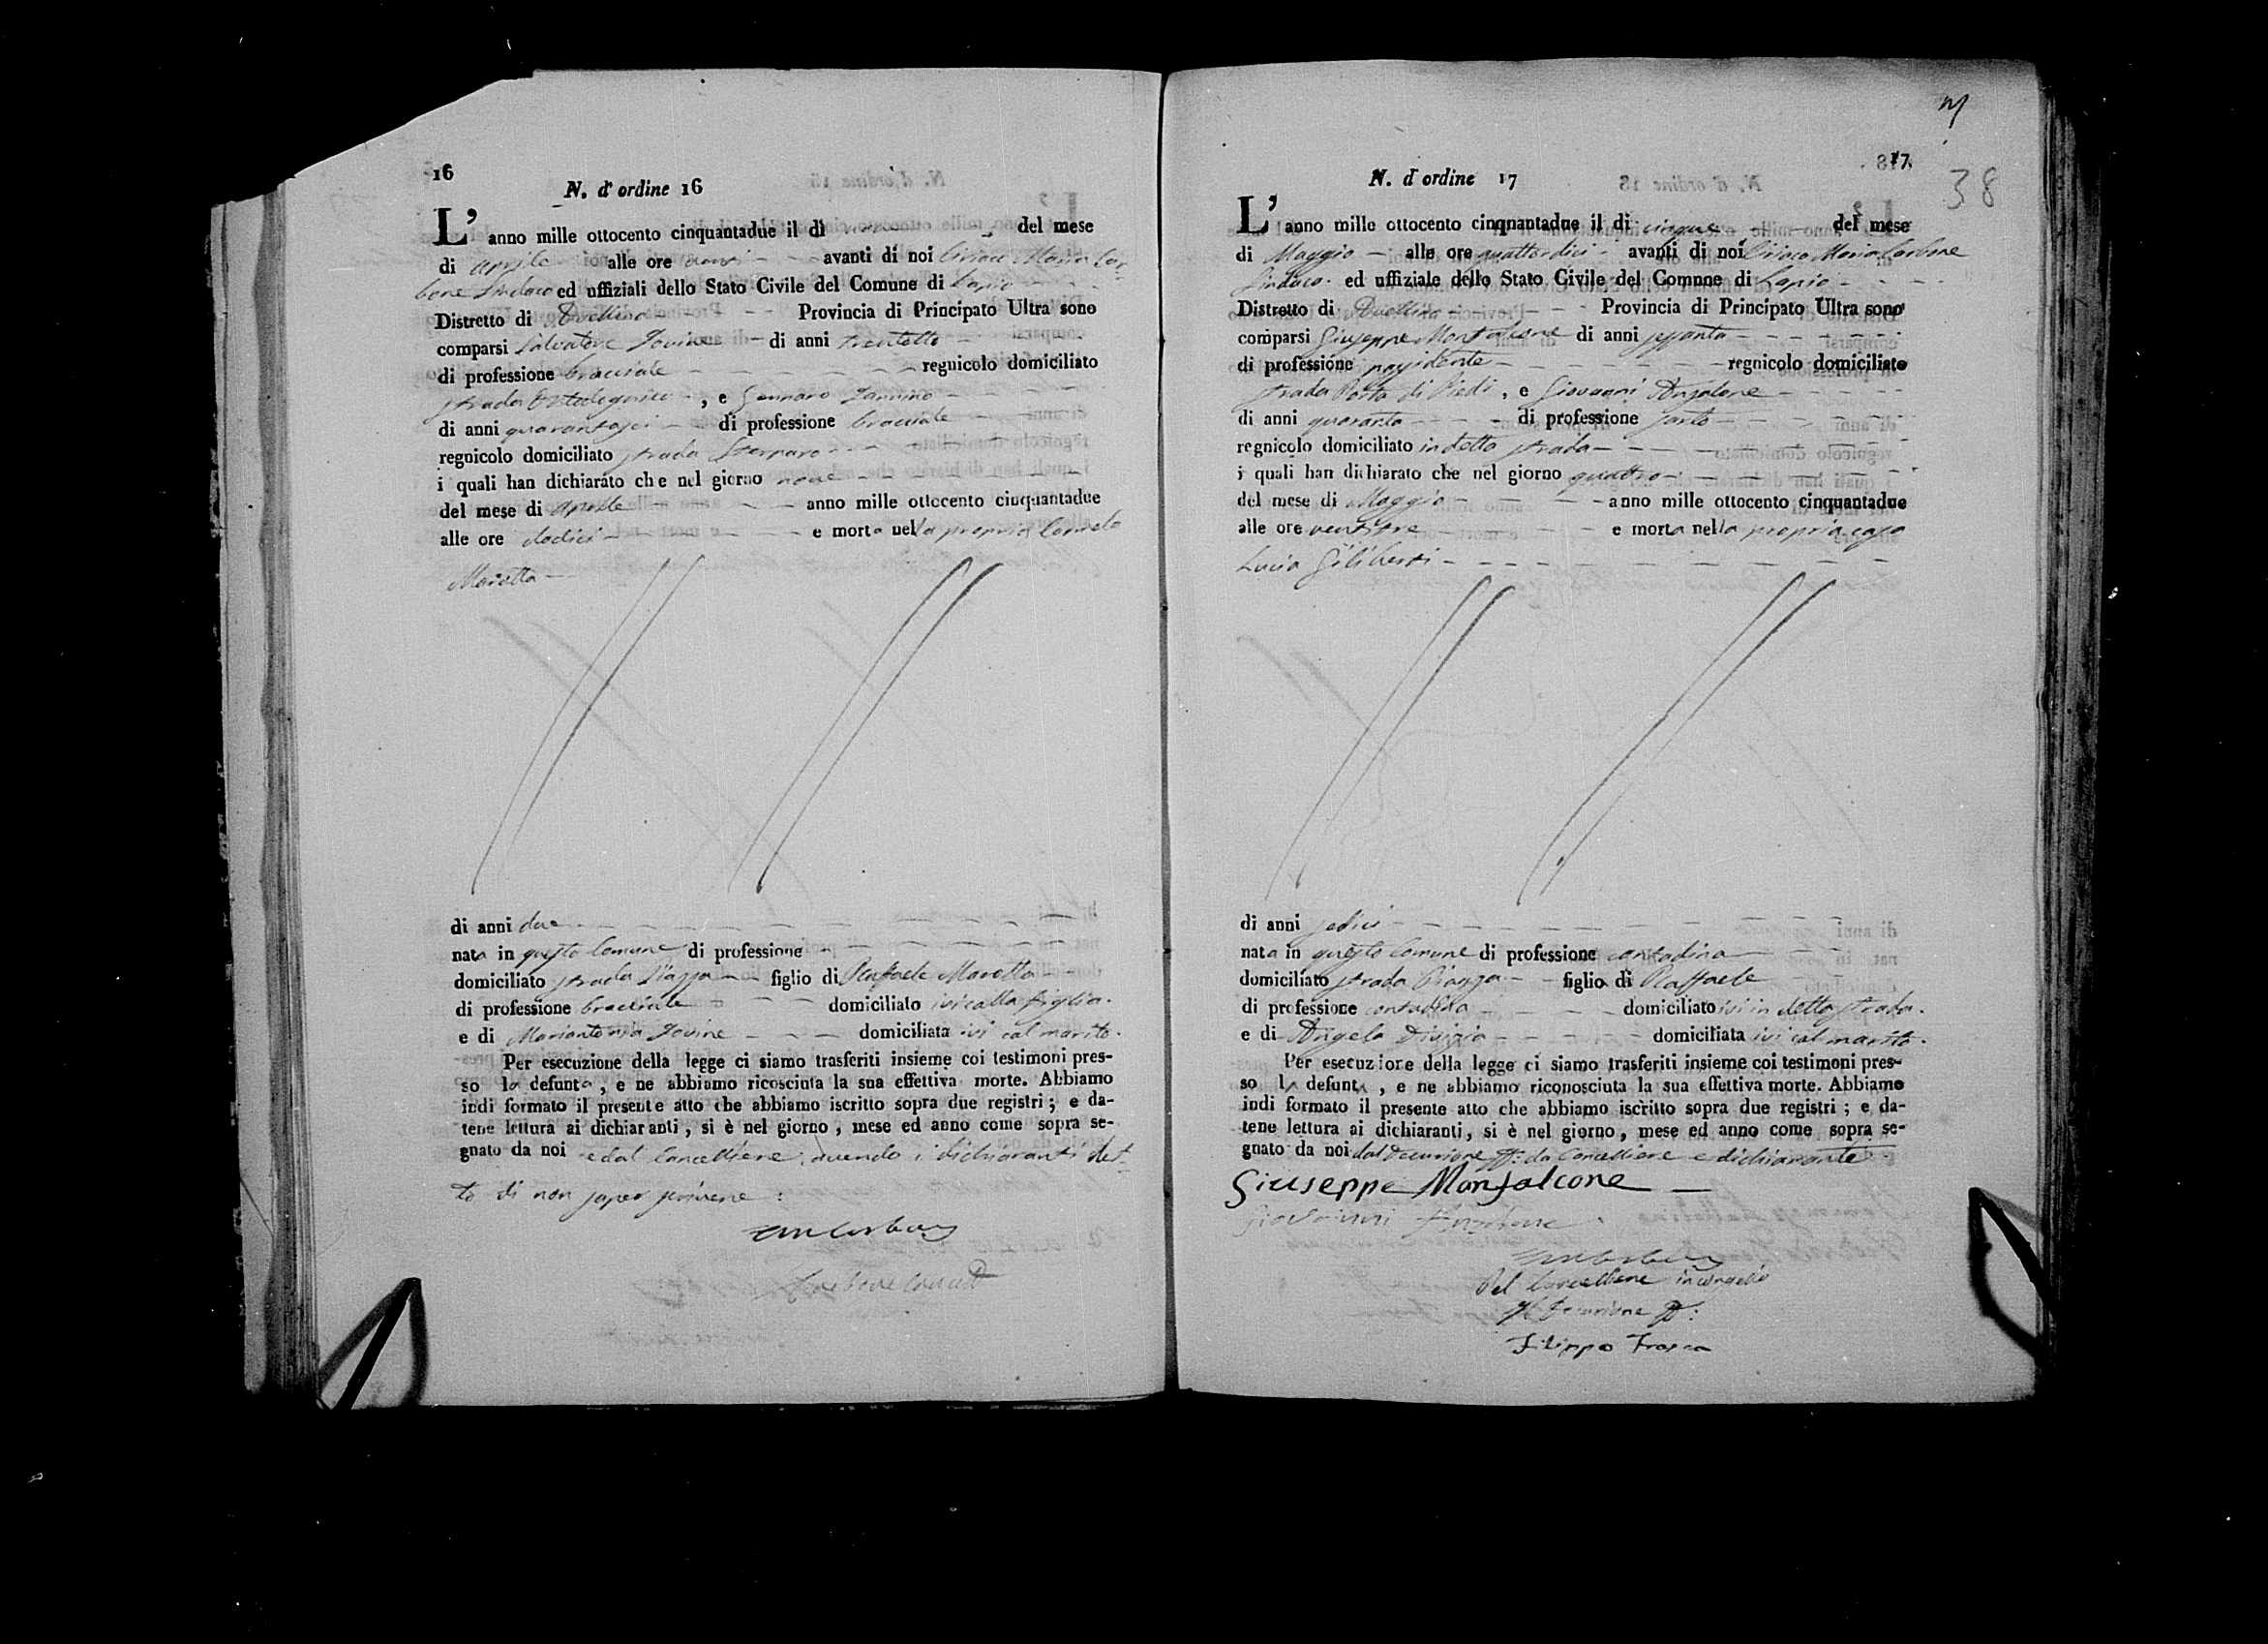 16
N. d'ordine 16
L' anno mille ottocento cinquantadue il dì del mese
di aprile alle ore avanti di noi Ciriaco Maria Car-
bone Sindaco ed uffiziali dello Stato Civile del Comune di Lapio
Distretto di Avellino Provincia di Principato Ultra sono
comparsi Salvatore Iovine di anni trentotto
di professione bracciale regnicolo domiciliato
strada , e Gennaro
di anni quarantasei di professione bracciale
regnicolo domiciliato strada
i quali han dichiarato che nel giorno nove
del mese di aprile anno mille ottocento cinquantadue
alle ore dodici e morta nella propria Carmela
Marotta
di anni due
nata in questo Comune di professione
domiciliato strada Piazza figlio di Raffaele Marotta
di professione bracciale domiciliato ivi colla figlia.
e di Mariantonia Iovine domiciliata ivi col marito.
Per esecuzione della legge ci siamo trasferiti insieme coi testimoni pres-
so la defunta, e ne abbiamo ricosciuta la sua effettiva morte. Abbiamo
indi formato il presente atto che abbiamo iscritto sopra due registri; e da-
tene lettura ai dichiaranti, si è nel giorno, mese ed anno come sopra se-
gnato da noi e dal Cancelliere, avendo i dichiaranti det-
to di non saper scrivere:
17
38
N. d'ordine 17
L' anno mille ottocento cinquantadue il dì cinque del mese
di Maggio alle ore quattordici avanti di noi Ciriaco Maria Carbone
Sindaco ed uffiziale dello Stato Civile del Comune di Lapio
Distretto di Avellino Provincia di Principato Ultra sono
comparsi Giuseppe Monfalcone di anni sessanta
di professione possidente regnicolo domiciliato
strada Porta di Piedi, e Giovanni Anzalone
di anni quaranta di professione sarto
regnicolo domiciliato in detta strada
i quali han dichiarato che nel giorno quattro
del mese di Maggio anno mille ottocento cinquantadue
alle ore ventitre e morta nella propria casa
Lucia Giliberti
di anni sedici
nata in questo Comune di professione contadina
domiciliato strada Piazza figlia di Raffaele
di professione contadina domiciliato ivi in detta strada.
e di Angela domiciliata ivi col marito.
Per esecuzione della legge ci siamo trasferiti insieme coi testimoni pres-
so la defunta, e ne abbiamo riconosciuta la sua effettiva morte. Abbiamo
indi formato il presente atto che abbiamo iscritto sopra due registri; e da-
tene lettura ai dichiaranti, si è nel giorno, mese ed anno come sopra se-
gnato da noi dal Decurione da Cancelliere e dichiarante
Giuseppe Monfalcone
Giovanni Anzalone
Pel Cancelliere in congedo
Il Decurione
Filippo Frasca